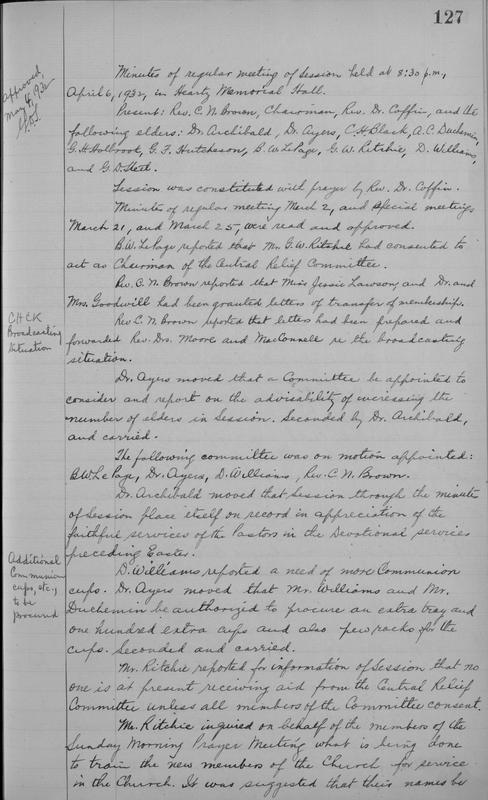 127
Approved,
May 4, 1932
Minutes of regular meeting of Session held at 8:30 p.m.,
April 6, 1932, in Heartz Memorial Hall.
Present: Rev. C. N. Brown, Chairman, Rev. Dr. Coffin, and the
following elders: Dr. Archibald, Dr. Ayers, C. H. Black, A. C. Duchemin,
G. H. Holbrook, G. F. Hutcheson, B. W. LePage, G. W. Ritchie, D. Williams,
and G. D.
Session was constituted with prayer by Rev. Dr. Coffin.
Minutes of regular meeting March 2, and special meetings
March 21, and March 25, were read and approved.
B. W. LePage reported that Mr. G. W. Ritchie had consented to
act as Chairman of the Central Relief Committee.
Rev. C. N. Brown reported that Miss Jessie Lawson, and Dr. and
Mrs. Goodwill had been granted letters of transfer of membership.
CHCK
Broadcasting
Situation
Rev. C. N. Brown reported that letters had been prepared and
forwarded Rev. Drs. Moore and MacConnell re the broadcasting
situation.
Dr. Ayers moved that a Committee be appointed to
consider and report on the advisability of increasing the
number of elders in Session. Seconded by Dr. Archibald,
and carried.
The following committee was on motion appointed:
B. W. LePage, Dr. Ayers, D. Williams, Rev. C. N. Brown.
Dr. Archibald moved that Session through the minutes
of Session place itself on record in appreciation of the
faithful services of the Pastors in the Devotional services
preceding Easter.
Additional
Communion
cups, etc.,
to be
procured
D. Williams reported a need of more Communion
cups. Dr. Ayers moved that Mr. Williams and Mr.
Duchemin be authorized to procure an extra tray and
one hundred extra cups and also pew racks for the
cups. Seconded and carried.
Mr. Ritchie reported for information of Session that no
one is at present receiving aid from the Central Relief
Committee unless all members of the Committee consent.
Mr. Ritchie inquired on behalf of the members of the
Sunday Morning Prayer Meeting what is being done
to train the new members of the Church for service
in the Church. It was suggested that their names be